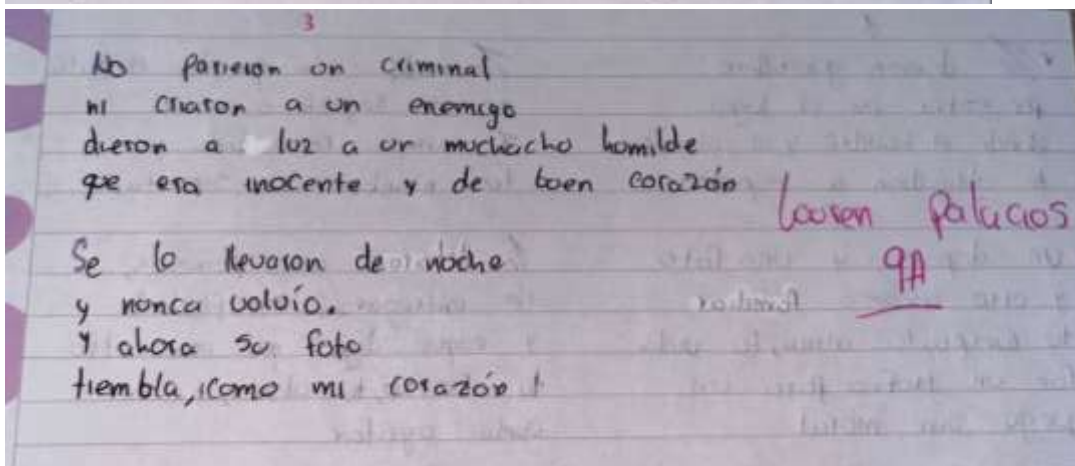 3
No parieron un criminal
ni criaron a un enemigo
dieron a luz a un muchacho homilde
que era inocente y de buen corazón
Se lo llevaron de noche
y nunca volvío.
y ahora su foto
tiembla, ¡como mi corazón!
Lauren Palacios
9A